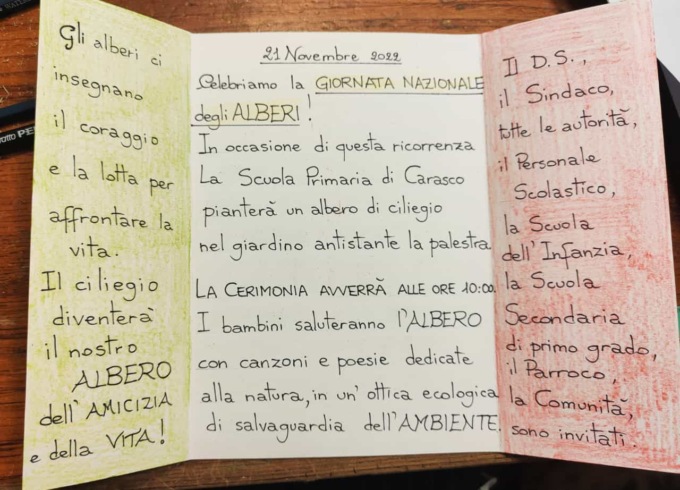 Gli alberi ci
insegnano
il coraggio
e la lotta per
affrontare la
vita.
Il ciliegio
diventerà
il nostro
ALBERO
dell'AMICIZIA
e della VITA!
21 Novembre 2022
Celebriamo la GIORNATA NAZIONALE
degli ALBERI!
In occasione di questa ricorrenza
La Scuola Primaria di Carasco
pianterà un albero di ciliegio
nel giardino antistante la palestra
LA CERIMONIA AVVERRÀ ALLE ORE 10:00.
I bambini saluteranno l'ALBERO
con canzoni e poesie dedicate
alla natura, in un'ottica ecologica
di salvaguardia dell'AMBIENTE.
Il D.S.,
il Sindaco,
tutte le autorità,
il Personale
Scolastico,
la Scuola
dell'Infanzia,
la Scuola
Secondaria
di primo grado,
il Parroco,
la Comunità,
sono invitati.